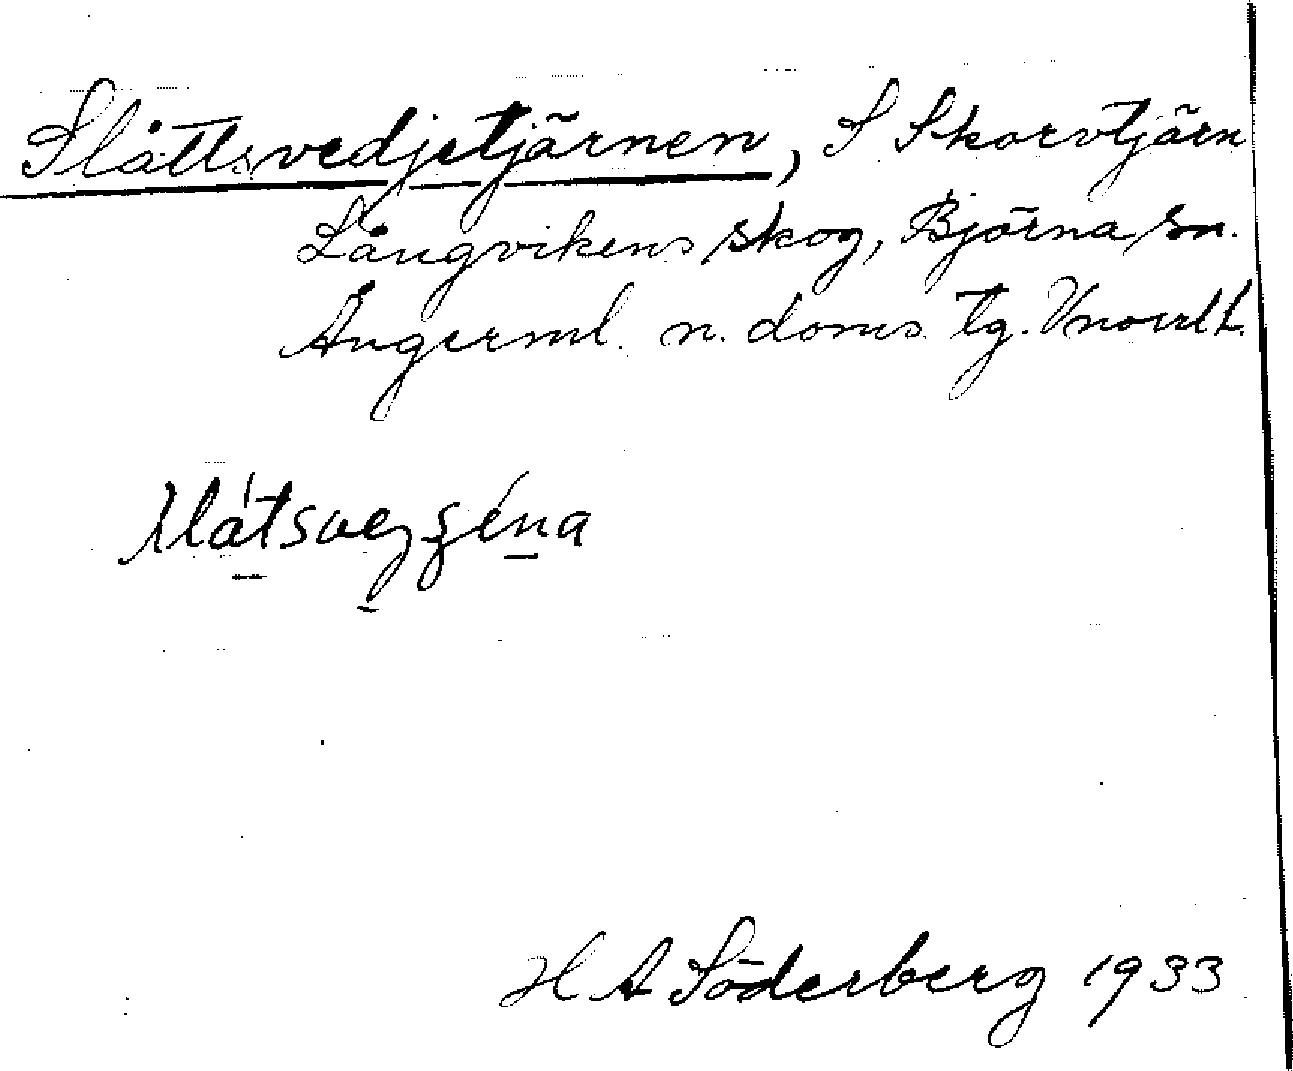 Slåttsvedjetjärnen, S Skorvtjärn
Långvikens skog, Björna sn.
Ångerml. n. doms. tg.
H A Söderberg 1933